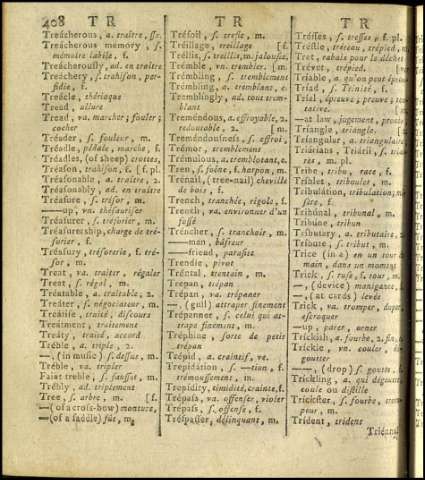 408 T R
T R
T R
Treácherous, a. traître, sse.
Treácherous memory, s.
mémoire labile, f.
Treácherously, ad. en traître
Treáchery, s. trahison, per-
fidie, f.
Treácle, thériaque
Tread, allure
Tread, va. marcher; fouler;
cocher
Tréader, s. fouleur, m.
Tréadle, pédale, marche, f.
Tréadles, (of sheep) crottes,
Tréason, trahison, f. [f. pl.
Tréasonable, a. traître, 2.
Tréasonably, ad. en traître
Tréasure, s. trésor, m.
—up, va. thésauriser
Tréasurer, s. trésorier, m.
Tréasurership, charge de tré-
sorier, f.
Tréasury, trésorerie, f. tré-
sor, m.
Treat, va. traiter, régaler
Treat, s. régal, m.
Tréatable, a. traitable, 2.
Tréater, s. négociateur, m.
Tréatise, traité, discours
Tréatment, traitement
Tréaty, traité, accord
Tréble, a. triple, 2.
—, (in music) s. dessus, m.
Tréble, va. tripler
Faint treble, s. fausset, m.
Trébly, ad. triplement
Tree, s. arbre, m. [f.
—(of a cross-bow) monture,
—(of a saddle) fût, m.
Tréfoil, s. trefle, m.
Tréillage, treillage [f.
Tréllis, s. treillis, m. jalousie,
Trémble, vn. trembler, [m.
Trémbling, s. tremblement
Trémbling, a. tremblant, e.
Tremblingly, ad. tout trem-
blant
Treméndous, a. effroyable, 2.
redoutable, 2. [m.
Treméndousness, s. effroi,
Trémor, tremblement
Trémulous, a. tremblotant, e.
Tren, s. foine, f. harpon, m.
Trénail, (tree-nail) cheville
de bois, f.
Trench, tranchée, rigole, f.
Trench, va. environner d'un
fossé
Tréncher, s. tranchoir, m.
—man, bâfreur
—friend, parasite
Trendle, pivot
Tréntal, trentain, m.
Trepan, trépan
Trépan, va. trépaner
—, (gull) attraper finement
Trépanner, s. celui qui at-
trape finement, m.
Tréphine, sorte de petit
trépan
Trépid, a. craintif, ve.
Trepidátion, s. —tion, f.
trémoussement, m.
Trepidity, timidité, crainte, f.
Tréspass, va. offenser, violer
Tréspass, s. offense, f.
Tréspasser, délinquant, m.
Trésses, s. tresses, f. pl.
Tréstle, tréteau, trépied, m.
Tret, rabais pour le déchet
Trévet, trépied, [ve.
Triable, a. qu'on peut éprou-
Triad, s. Trinité, f.
Trial, épreuve; preuve; ten-
tative;
—at law, jugement, procès
Triangle, triangle, [m.
Triangular, a. triangulaire
Tribe, tribu, race, f.
Tribulátion, tribulation; mi-
sere, f.
Tribúnal, tribunal, m.
Tribune, tribun
Tributary, a. tributaire, 2.
Tribute, s. tribut, m.
Trice (in a) en un tour de
main, dans un moment
Trick, s. ruse, f. tour, m.
—, (device) manigance, f.
—, (at cards) levée
Trick, va. tromper, duper,
escroquer
—up, parer, orner
Trickish, a. fourbe, 2. fin, e.
Trickle, vn. couler, dé-
goutter
—, (drop) s. goutte, f.
Trickling, a. qui dégoutte,
coule ou distille
Trickster, s. fourbe, trom-
peur, m.
Trident, trident